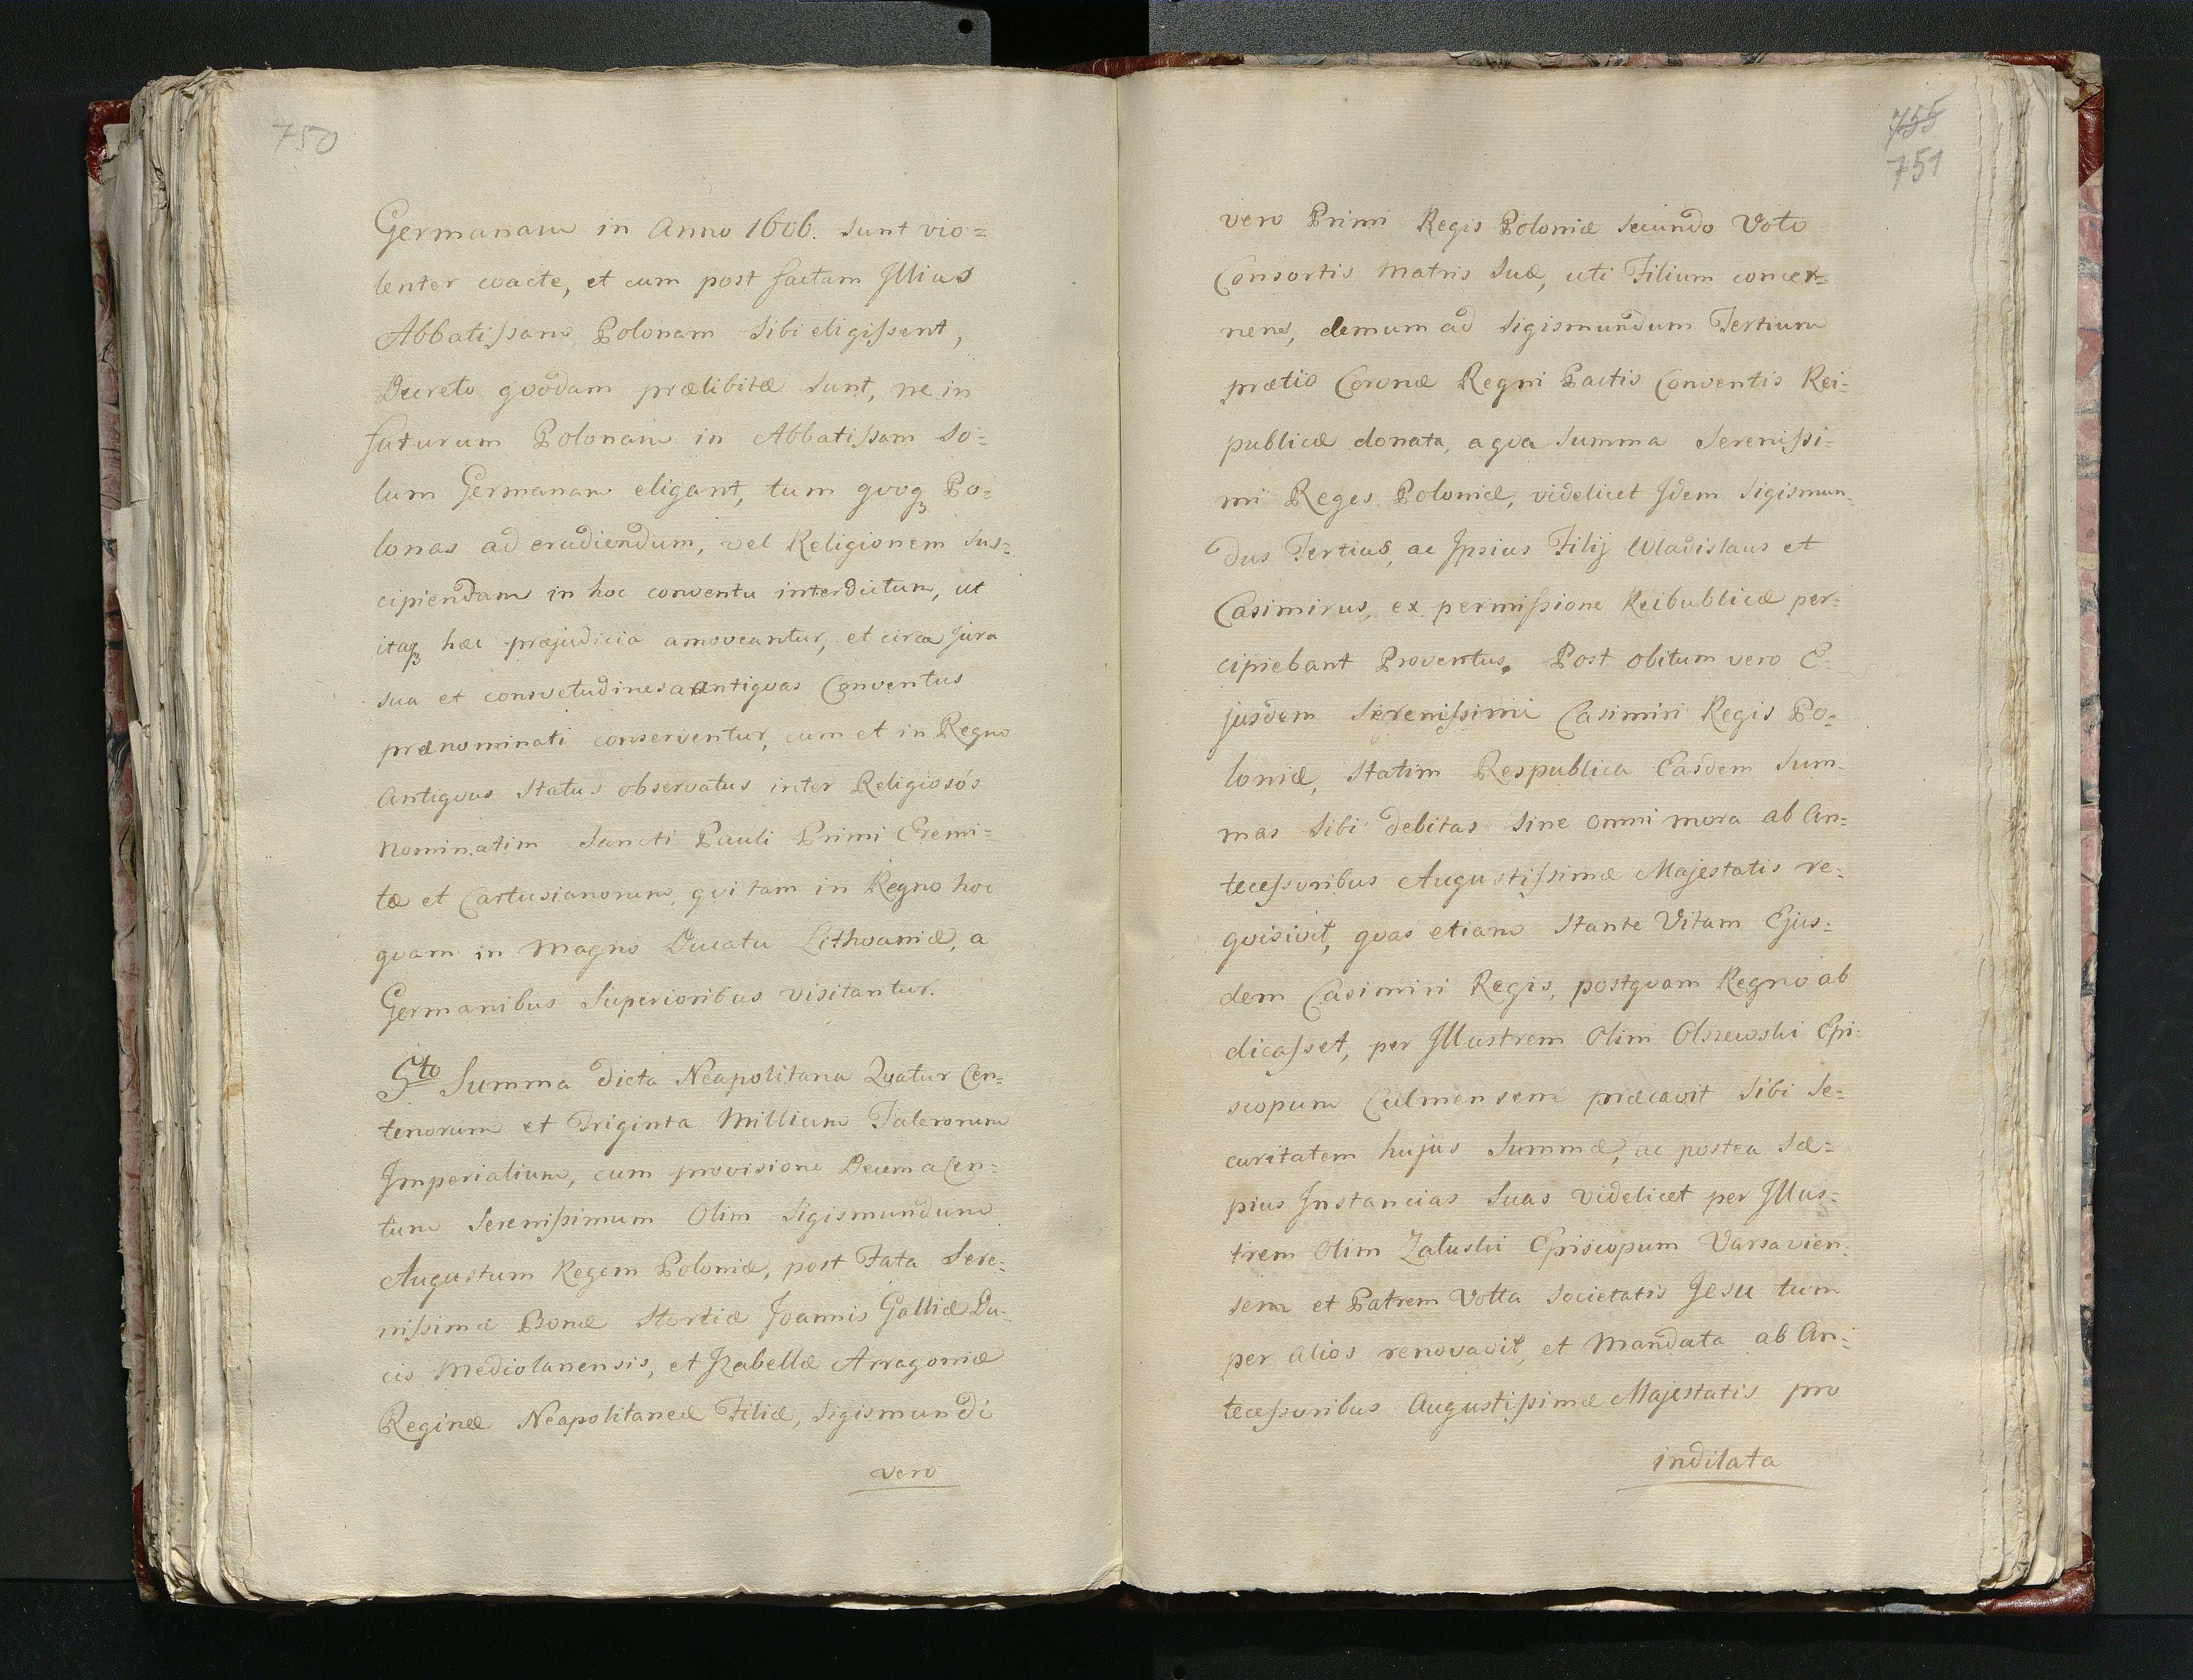 750
Germanam in Anno 1606. sunt vio=
lenter coacte, et cum post factam Illius
Abbatissam Polonam sibi eligissent,
Decreto qvodam prælibitæ sunt, ne in
futurum Polonam in Abbatissam so=
lum Germanam eligant, tum qvoqȝ Po=
lonas ad erudiendum, vel Religionem sus=
cipiendam in hoc conventu interdictum, ut
itaqȝ hæc præjudicia amoveantur, et circa Jura
sua et consvetudines antiqvas Conventus
prænominati conserventur, cum et in Regno
Antiqvus Status observatus inter Religiosós
nominatim Sancti Pauli Primi Eremi=
tæ et Cartusianorum, qvi tam in Regno hoc
qvam in Magno Ducatu Lithvaniæ, a
Germanibus Superioribus visitantur.
5to Summa dicta Neapolitana Qvatur Cen=
tenorum et Triginta Millium Talerorum
Imperialium, cum provisione Decem a Cen=
tum Serenissimum Olim Sigismundum
Augustum Regem Poloniæ, post Fata Sere=
nissimæ Bonæ Stortiæ Joannis Galliæ Du=
cis Mediolanensis, et Izabellæ Arragoniæ
Reginæ Neapolitaneæ Filiæ, Sigismundi
vero
755
751
vero Primi Regis Poloniæ Secundo Voto
Consortis Matris Suæ, uti Filium concer=
nens, demum ad Sigismundum Tertium
prætio Coronæ Regni Pactis Conventis Rei=
publicæ donata, a qva Summa Serenissi=
mi Reges Poloniæ, videlicet Idem Sigismun=
dus Tertius, ac Ipsius Filij Wladislaus et
Casimirus, ex permissione Reibublicæ per=
cipiebant Proventus. Post obitum vero E=
jusdem Serenissimi Casimiri Regis Po=
loniæ, Statim Respublica Easdem Sum=
mas Sibi debitas Sine omni mora ab An=
tecessoribus Augustissimæ Majestatis re=
qvisivit, qvas etiam Stante Vitam Ejus=
dem Casimiri Regis, postqvam Regno ab
dicasset, per Illustrem Olim Olszewski Epi=
scopum Culmensem præcavit Sibi Se=
curitatem hujus Summæ, ac postea Sæ=
pius Instancias Suas videlicet per Illus=
trem Olim Załuski Episcopum Varsavien=
sem et Patrem Votta Societatis Jesu tum
per Alios renovavit, et Mandata ab An=
tecessoribus Augustissimæ Majestatis pro
indilata